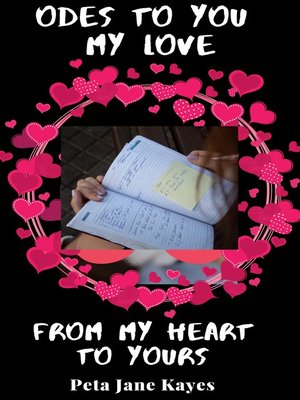 ODES TO YOU
MY LOVE
FROM MY HEART
TO YOURS
Peta Jane Kayes